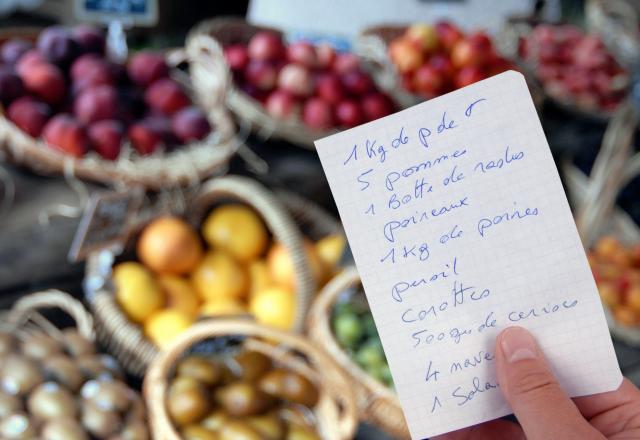 1 Kg de p de
5 pommes
1 Botte de radis
poireaux
1 Kg de poires
persil
Carottes
500g de cerises
4 nave
1 Sala